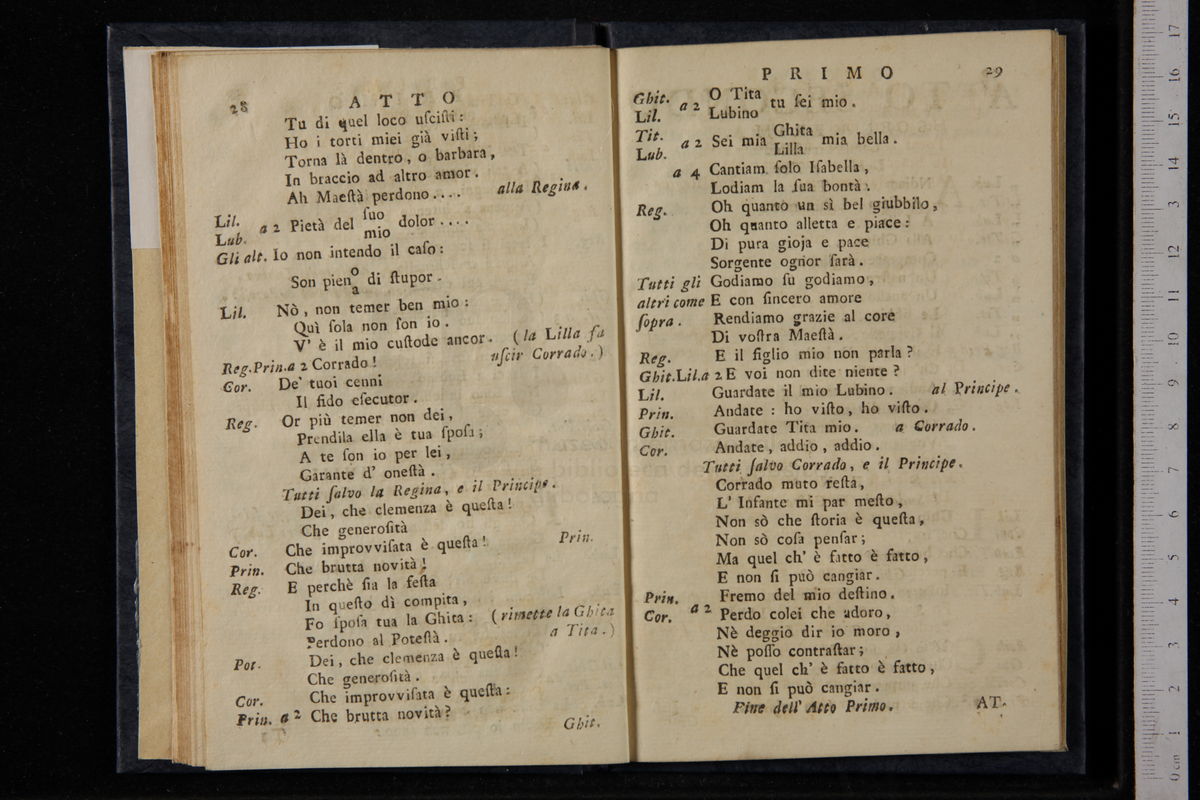 28
A T T O
Tu di quel loco uſciſti:
Ho i torti miei già viſti;
Torna là dentro, o barbara,
In braccio ad altro amor.
Ah Maeſtà perdono.... alla Regina.
Lil. Lub. a 2 Pietà del ſuo mio dolor....
Gli alt. Io non intendo il caſo:
Son pien o a di ſtupor.
Lil. Nò, non temer ben mio:
Quì ſola non ſon io.
V' è il mio cuſtode ancor. (la Lilla fa
uſcir Corrado.)
Reg.Prin.a 2 Corrado!
Cor. De' tuoi cenni
Il fido eſecutor.
Reg. Or più temer non dei,
Prendila ella è tua ſpoſa;
A te ſon io per lei,
Garante d' oneſtà.
Tutti ſalvo la Regina, e il Principe.
Dei, che clemenza è queſta!
Che generoſità
Cor. Che improvviſata è queſta! Prin.
Prin. Che brutta novità!
Reg. E perchè ſia la feſta
In queſto dì compita,
Fo ſpoſa tua la Ghita: (rimette la Ghita
Perdono al Poteſtà. a Tita.)
Pot. Dei, che clemenza è queſta!
Che generoſità.
Cor. Che improvviſata è queſta:
Prin. a 2 Che brutta novità?
Ghit.
P R I M O 29
Ghit. Lil. a 2 O Tita Lubino tu ſei mio.
Tit. Lub. a 2 Sei mia Ghita Lilla mia bella.
a 4 Cantiam ſolo Iſabella,
Lodiam la ſua bontà.
Reg. Oh quanto un sì bel giubbilo,
Oh quanto alletta e piace:
Di pura gioja e pace
Sorgente ognor ſarà.
Tutti gli Godiamo ſu godiamo,
altri come E con ſincero amore
ſopra. Rendiamo grazie al core
Di voſtra Maeſtà.
Reg. E il figlio mio non parla?
Ghit.Lil.a 2 E voi non dite niente?
Lil. Guardate il mio Lubino. al Principe.
Prin. Andate: ho viſto, ho viſto.
Ghit. Guardate Tita mio. a Corrado.
Cor. Andate, addio, addio.
Tutti ſalvo Corrado, e il Principe.
Corrado muto reſta,
L' Infante mi par meſto,
Non sò che ſtoria è queſta,
Non sò coſa penſar;
Ma quel ch' è fatto è fatto,
E non ſi può cangiar.
Prin. Fremo del mio deſtino.
Cor. a 2 Perdo colei che adoro,
Nè deggio dir io moro,
Nè poſſo contraſtar;
Che quel ch' è fatto è fatto,
E non ſi può cangiar.
Fine dell' Atto Primo. AT-
0 cm 1 2 3 4 5 6 7 8 9 10 11 12 13 14 15 16 17